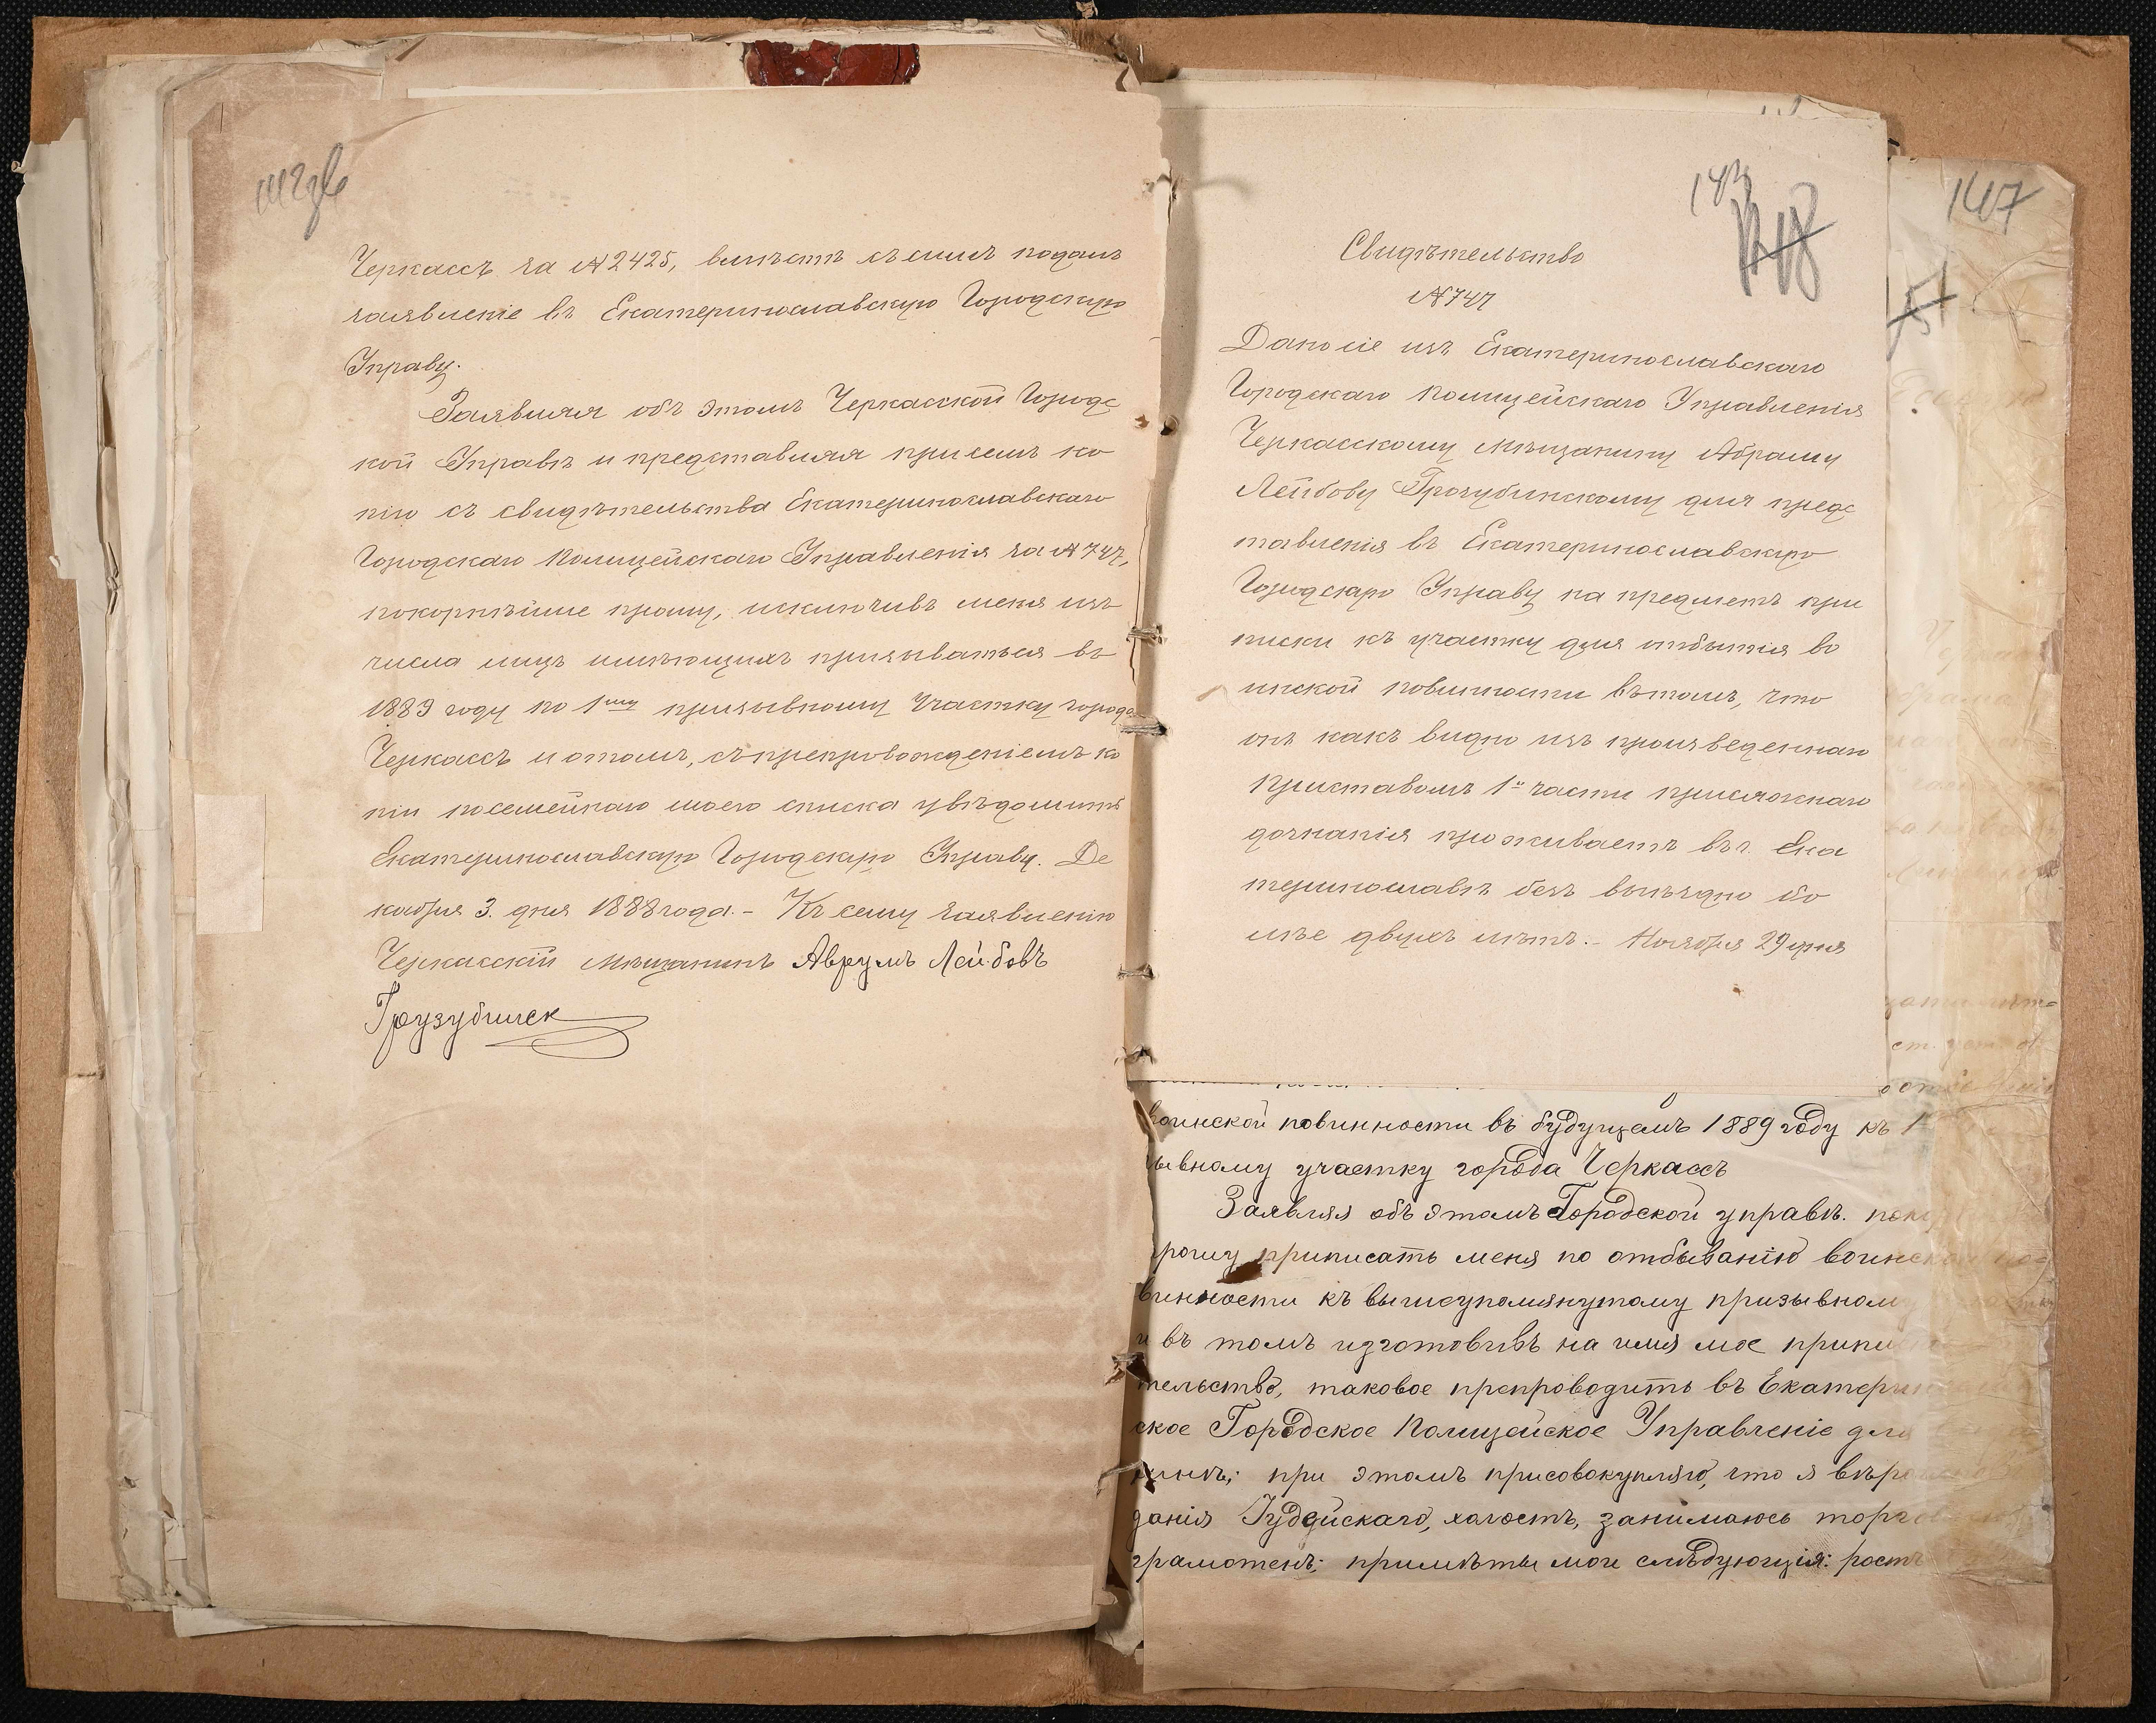 Черкассъ за №2425, вмѣстѣ съ симъ подалъ
заявленіе въ Екатеринославскую Городскую
Управу.
Заявляя объ этомъ Черкасской Городс
кой Управѣ и представляя при семъ ко
пію съ свидѣтельства Екатеринославскаго
Городскаго Полицейскаго Управленія за №747,
покорнѣйше прошу, исключивъ меня изъ
числа лицъ имѣющихъ призываться въ
1889 году по 1му призывному Участку города
Черкассъ и отомъ, съ препровожденіемъ ко
піи посемейнаго моего списка увѣдомить
Екатеринославскую Городскую Управу. Де
кабря 3. дня 1888 года. – Къ сему заявленію
Черкасскій Мѣщанинъ Аврумъ Лейбовъ
Грузубинск
143
147
Свидѣтельство
№747
Дано сіе изъ Екатеринославскаго
Городскаго Полицейскаго Управленія
Черкасскому Мѣщанину Абраму
Лейбову Грозубинскому для предс
тавленія въ Екатеринославскую
Городскую Управу на предметъ при
писки къ участку для отбытія во
инской повинности въ томъ, что
онъ какъ видно изъ произведеннаго
Приставомъ 1й части присяжнаго
дознанія проживаетъ въ г. Ека
теринославѣ безъ выѣздно бо
лѣе двухъ лѣтъ. – Ноября 29 дня
воинской повинности въ будущемъ 1889 году къ 1
ывному участку города Черкассъ
Заявляя объ этомъ Городской управѣ. пок
рошу приписать меня по отбыванію воинской по=
винности къ вышеупомянутому призывному
и въ томъ изготовивъ на имя мое припи
тельство, таковое препроводить въ Екатерин
ское Городское Полицейское Управленіе для
мнѣ; при этомъ присовокупляю, что я вѣро
данія Іудейскаго, холостъ, занимаюсь торго
грамотенъ; примѣты мои слѣдующія: ростъ